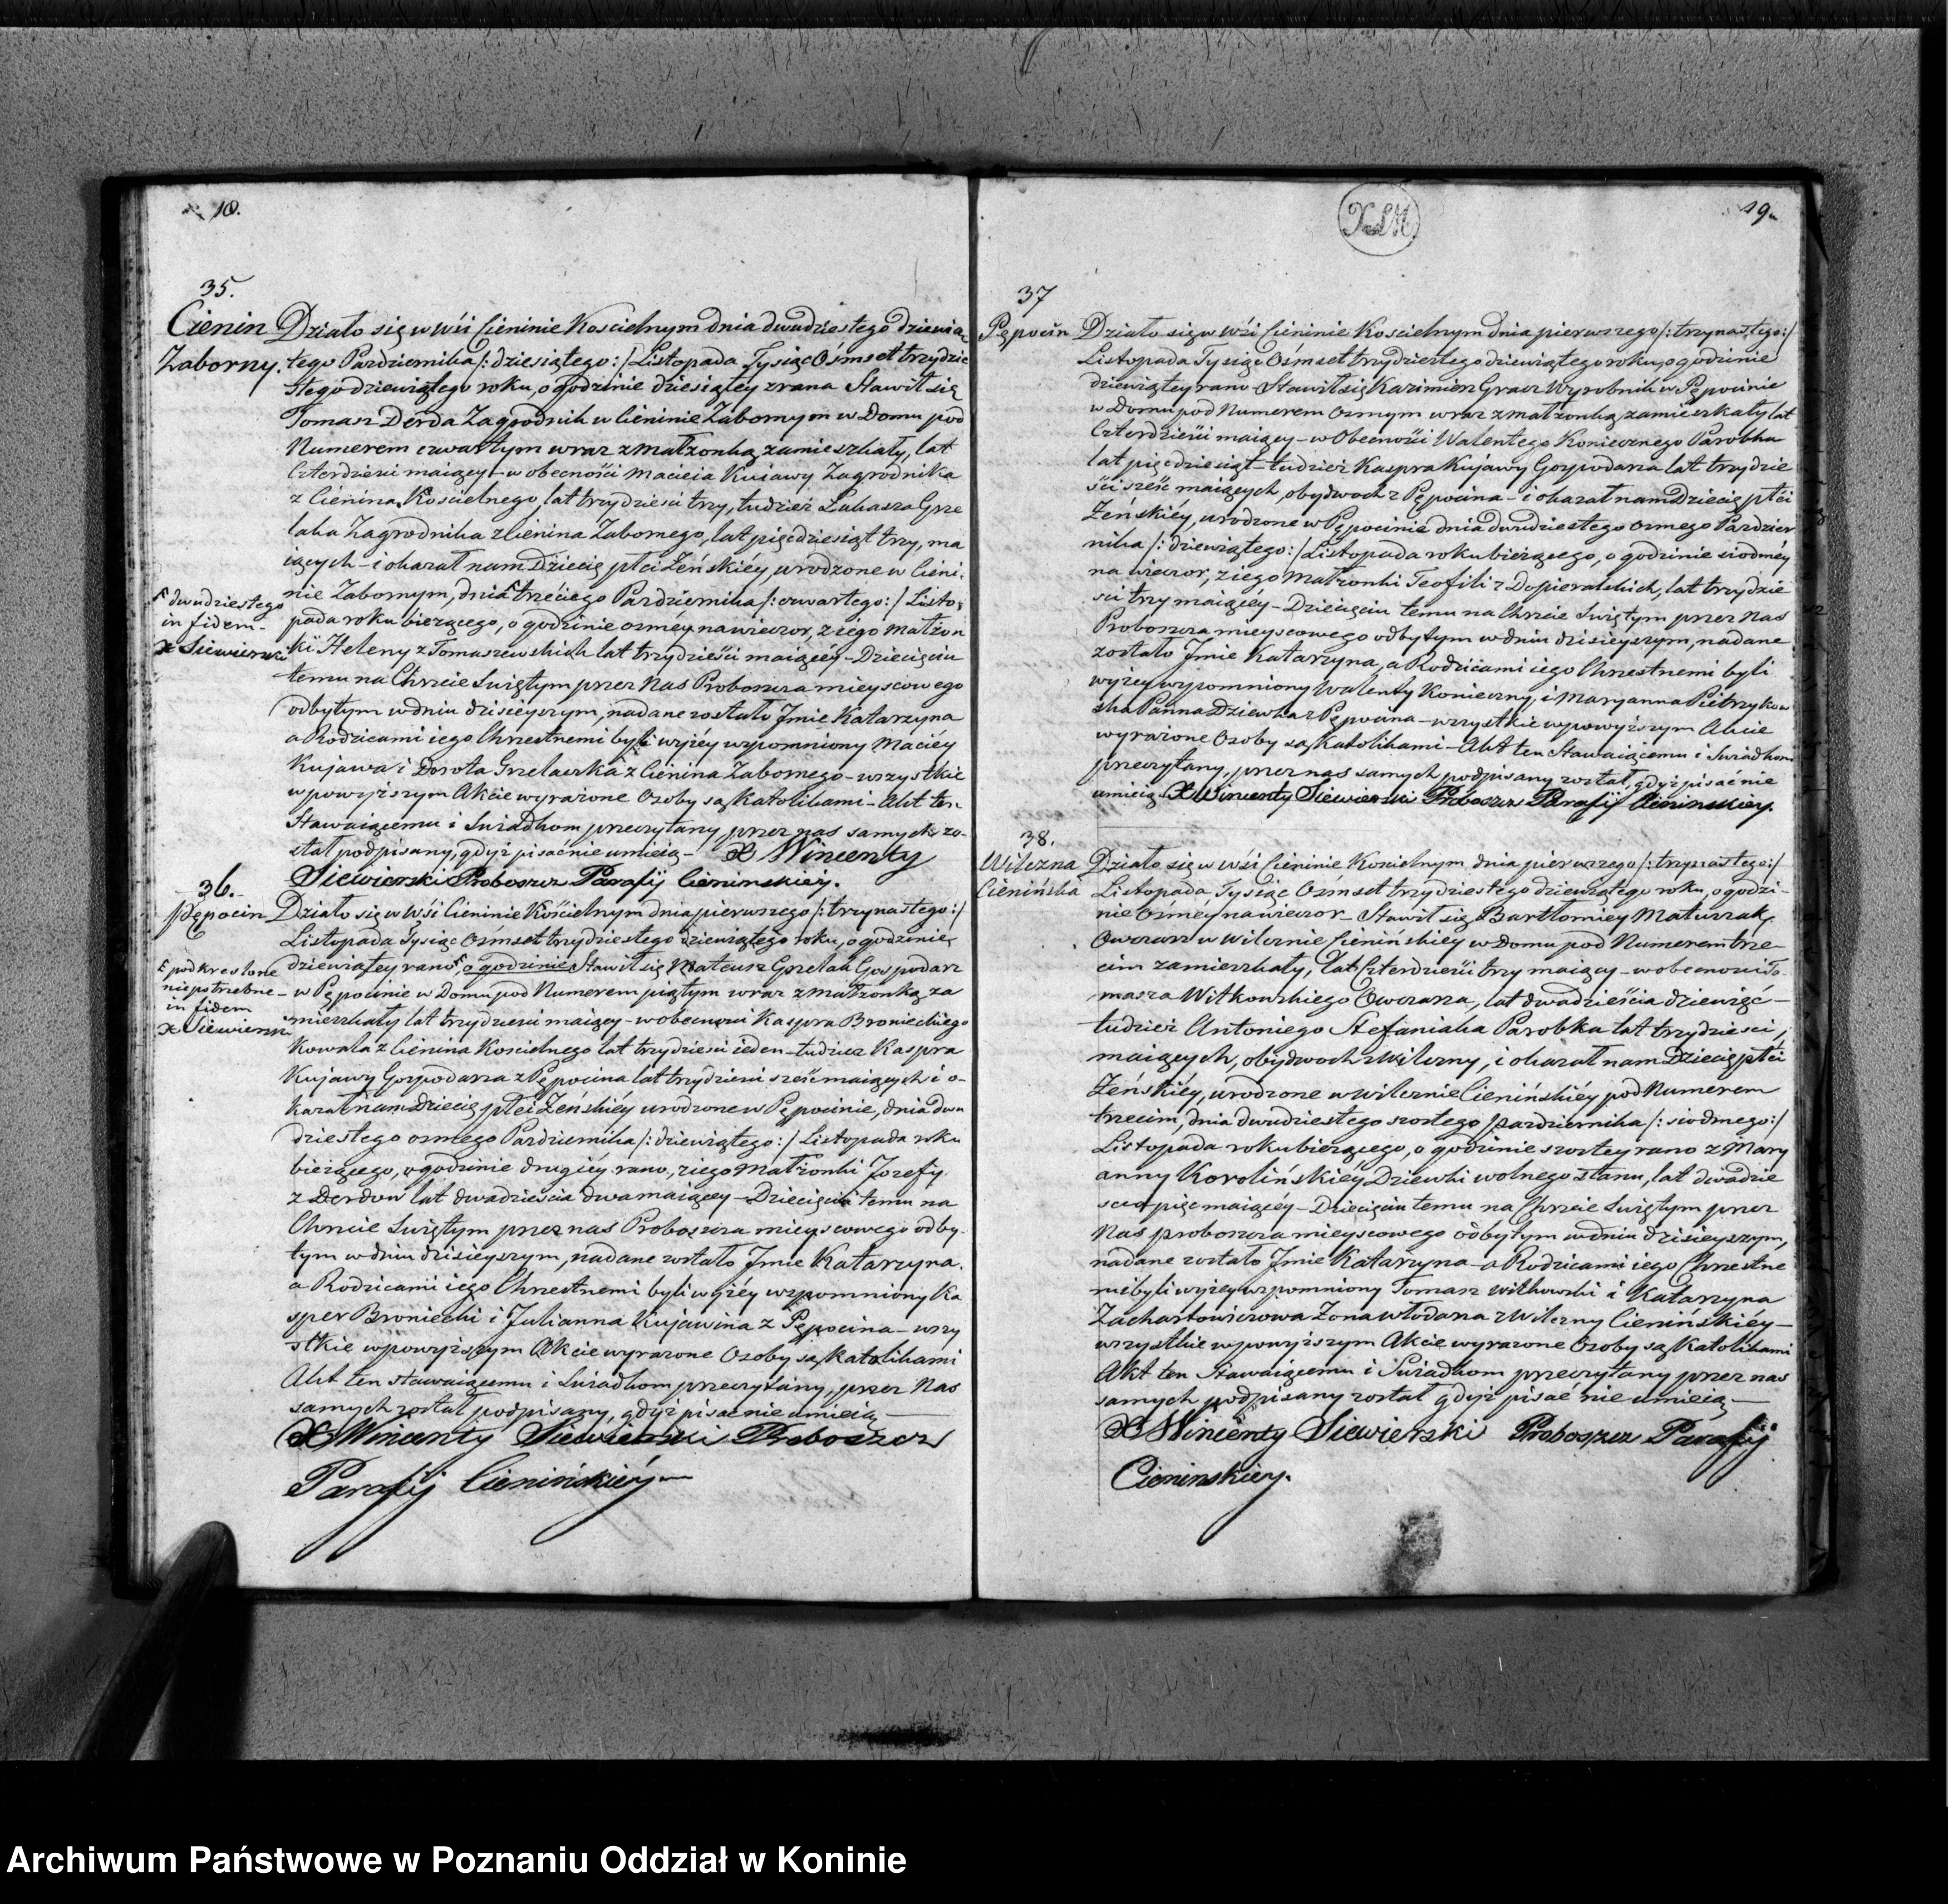 18.
35.
Cienin
Zaborny.
Działo się w Wśi Cieninie Kościelnym dnia dwudziestego dziewią
tego Pazdziernika /: dziesiątego :/ Listopada Tysiąc Ośmset trzydzie
stego dziewiątego roku, o godzinie dziesiątey zrana Stawił się
Tomasz Derda Zagrodnik w Cieninie Zabornym w Domu pod
Numerem czwartym wraz z małżonką zamieszkały, lat
Czterdzieści maiący - w obecności Macieia Kuiawy Zagrodnika
z Cienina Kościelnego, lat trzydzieści trzy, tudzież Łukasza Grze
laka Zagrodnika z Cienina Zabornego, lat pięćdziesiąt trzy, ma
iących - i okazał nam Dziecię płci Żeńskiéy, urodzone w Cieni-
nie Zabornym, dnia trzeciego Pazdziernika /: czwartego :/ Listo-
pada roku bieżącego, o godzinie osméy na wieczor, z iego Małżon
ki Heleny z Tomaszewskich lat trzydzieści maiącéy - Dziecięciu
temu na Chrzcie Świętym przez Nas Proboszcza mieyscowego
odbytym w dniu dzisieyszym, nadane zostało Jmie Katarzyna
a Rodzicami iego Chrzestnemi byli wyżéy wzpomniony Maciéy
Kujawa i Dorota Grzelaczka z Cienina Zabornego - wszystkie
w powyższym Akcie wyrażone Osoby są Katolikami - Akt ten
Stawaiącemu i Świadkom przeczytany przez nas samych zo-
stał podpisany, gdyż pisać nie umieią - X Wincenty
Siewierski Proboszcz Parafij Cieninskiéy.
dwudziestego
in fidem -
X Siewierski
36.
Pępocin
Działo się w Wśi Cieninie Kościelnym dnia pierwszego /: trzynastego :/
Listopada Tysiąc Ośmset trzydziestego dziewiątego roku, o godzinie
dziewiątey rano, o godzinie Stawił się Mateusz Grzelak Gospodarz
w Pępocinie w Domu pod Numerem piątym wraz z małżonką za
mieszkały lat trzydzieści maiący - w obecności Kaspra Bronieckiego
Kowala z Cienina Kościelnego lat trzydzieści ieden - tudzież Kaspra
Kujawy Gospodarza z Pępocina lat trzydzieści sześć maiących i o-
kazał nam Dziecię płci Żeńskiéy urodzone w Pępocinie, dnia dwu
dziestego osmego Pazdziernika /: dziewiątego :/ Listopada roku
bieżącego, o godzinie drugiéy rano, z iego Małżonki Jozefy
z Derdow lat dwadzieścia dwa maiącey - Dziecięciu temu na
Chrzcie Świętym przez nas Proboszcza mieyscowego odby-
tym w dniu dzisieyszym, nadane zostało Jmie Katarzyna.
a Rodzicami iego Chrzestnemi byli wyżéy wzpomniony Ka
sper Broniecki i Julianna Kujawina z Pępocina - wszy
stkie w powyższym Akcie wyrażone Osoby są Katolikami
Akt ten stawaiącemu i Świadkom przeczytany, przez Nas
samych został podpisany, gdyż pisać nie umieią
X Wincenty Siewierski Proboszcz
Parafij Cienińskiéy
podkreslone
niepotrzebne -
in fidem
X Siewierski
XLM
19
37
Pępocin
Działo się w Wśi Cieninie Kościelnym dnia pierwszego /: trzynastego :/
Listopada Tysiąc Ośmset trzydziestego dziewiątego roku, o godzinie
dziewiątey rano - Stawił się Kazimierz Gracz Wyrobnik w Pępocinie
w Domu pod Numerem Osmym wraz z małżonką zamieszkały lat
Czterdzieści maiący - w Obecności Walentego Koniecznego Parobka
lat pięćdziesiąt - tudzież Kaspra Kujawy Gospodarza lat trzydzie
ści sześć maiących, obydwoch z Pępocina - i okazał nam Dziecię płci
Żeńskiey, urodzone w Pępocinie dnia dwudziestego osmego Pazdzier
nika /: dziewiątego :/ Listopada roku bieżącego, o godzinie siodméy
na wieczor, z iego Małżonki Teofili z Dopieralskich, lat trzydzie
ści trzy maiącéy - Dziecięciu temu na Chrzcie Świętym przez Nas
Proboszcza mieyscowego odbytym w dniu dzisieyszym, nadane
zostało Jmie Katarzyna, a Rodzicami iego Chrzestnemi byli
wyżey wzpomniony Walenty Konieczny, i Maryanna Pietrzykow
ska Panna Dziewka z Pępocina - wszystkie w powyższym Akcie
wyrażone Osoby są Katolikami - Akt ten Stawaiącemu i Świadkom
przeczytany, przez nas samych podpisany został, gdyż pisać nie
umieią X Wincenty Siewierski Proboszcz Parafij Cieninskiey.
38.
Wilczna
Cienińska
Działo się w Wśi Cieninie Kościelnym dnia pierwszego /: trzynastego :/
Listopada, Tysiąc Ośmset trzydziestego dziewiątego roku, o godzi-
nie Osméy na wieczor - Stawił się Bartłomiéy Matuszak,
Owczarz w Wilcznie Cienińskiéy w Domu pod Numerem trze-
cim zamieszkały, lat Czterdzieści trzy maiący - w obecności To
masza Witkowskiego Owczarza, lat dwadzieścia dziewięć -
tudzież Antoniego Stefaniaka Parobka lat trzydzieści,
maiących, obydwoch z Wilczny, i okazał nam Dziecię płci
Żeńskiéy, urodzone w Wilcznie Cienińskiéy pod Numerem
trzecim, dnia dwudziestego szostego Pazdziernika /: siodmego :/
Listopada roku bieżącego, o godzinie szostey rano z Mary
anny Karolińskiéy Dziewki wolnego stanu, lat dwadzie
scia pięć maiącéy - Dziecięciu temu na Chrzcie Świętym przez
Nas proboszcza mieyscowego odbytym w dniu dzisieyszym,
nadane zostało Jmie Katarzyna - a Rodzicami iego Chrzestne
mi byli wyżey wzpomniony Tomasz Witkowski i Katarzyna
Zachartowiczowa Żona włodarza z Wilczny Cienińskiéy -
wszystkie w powyższym Akcie wyrażone Osoby są Katolikami
Akt ten Stawaiącemu i Świadkom przeczytany przez nas
samych podpisany został gdyż pisać nie umieią -
X Wincenty Siewierski Proboszcz Parafij
Cieninskiey.
Archiwum Państwowe w Poznaniu Oddział w Koninie